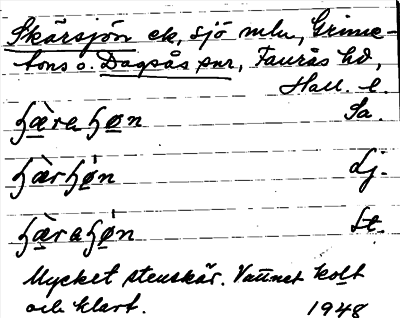 Skärsjön ek, sjö mlu, Grimme-
tons o. Dagsås snr, Faurås hd,
Hall. l.
hæ̀rahøn Sa.
hæ̀rhøn Lj.
hæ̀rahøn St.
Mycket stenskär. Vattnet kolt
och klart. 1948